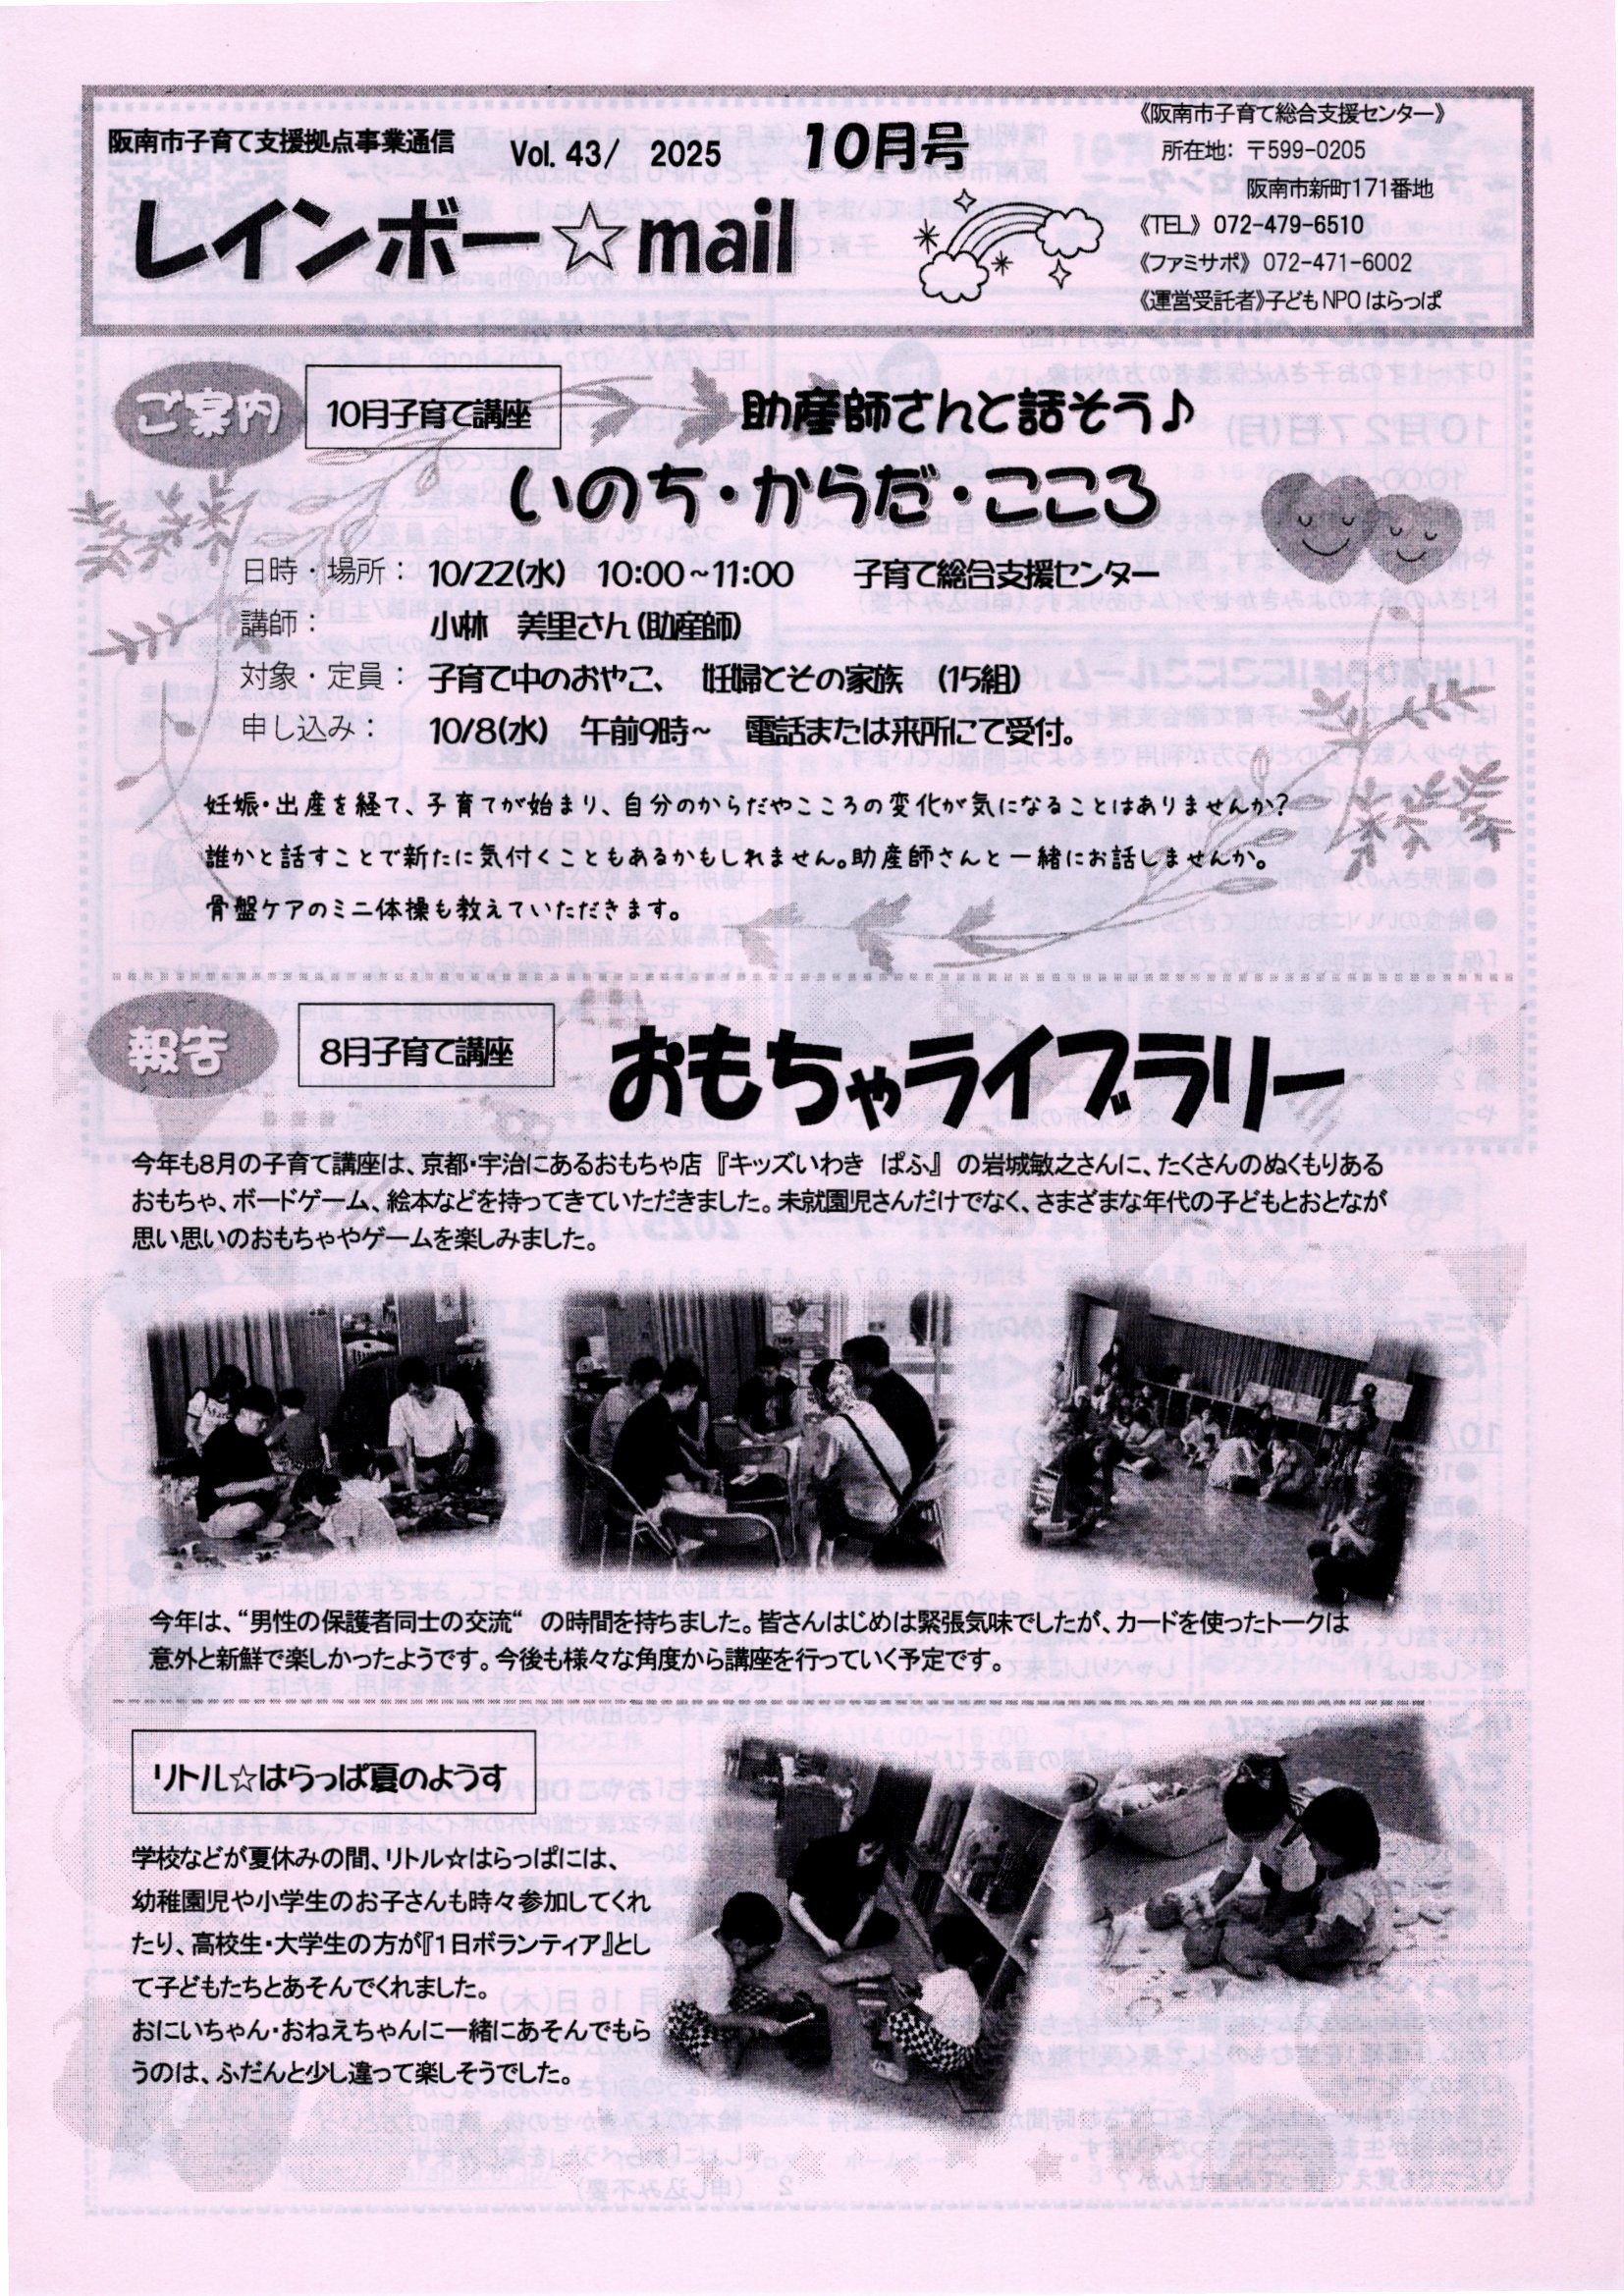 阪南市子育て支援拠点事業通信 Vol. 43/ 2025 10月号
レインボー☆mail
《阪南市子育て総合支援センター》
所在地: 〒599-0205
阪南市新町171番地
《TEL》 072-479-6510
《ファミサポ》 072-471-6002
《運営受託者》子どもNPOはらっぱ
ご案内 10月子育て講座 助産師さんと話そう♪
いのち・からだ・こころ
日時・場所： 10/22(水) 10:00~11:00 子育て総合支援センター
講師： 小林 美里さん(助産師)
対象・定員： 子育て中のおやこ、 妊婦とその家族 (15組)
申し込み： 10/8(水) 午前9時~ 電話または来所にて受付。
妊娠・出産を経て、子育てが始まり、自分のからだやこころの変化が気になることはありませんか?
誰かと話すことで新たに気付くこともあるかもしれません。助産師さんと一緒にお話しませんか。
骨盤ケアのミニ体操も教えていただきます。
報告 8月子育て講座 おもちゃライブラリー
今年も8月の子育て講座は、京都・宇治にあるおもちゃ店『キッズいわき ぱふ』の岩城敏之さんに、たくさんのぬくもりある
おもちゃ、ボードゲーム、絵本などを持ってきていただきました。未就園児さんだけでなく、さまざまな年代の子どもとおとなが
思い思いのおもちゃやゲームを楽しみました。
今年は、“男性の保護者同士の交流“ の時間を持ちました。皆さんはじめは緊張気味でしたが、カードを使ったトークは
意外と新鮮で楽しかったようです。今後も様々な角度から講座を行っていく予定です。
リトル☆はらっぱ夏のようす
学校などが夏休みの間、リトル☆はらっぱには、
幼稚園児や小学生のお子さんも時々参加してくれ
たり、高校生・大学生の方が『1日ボランティア』とし
て子どもたちとあそんでくれました。
おにいちゃん・おねえちゃんに一緒にあそんでもら
うのは、ふだんと少し違って楽しそうでした。